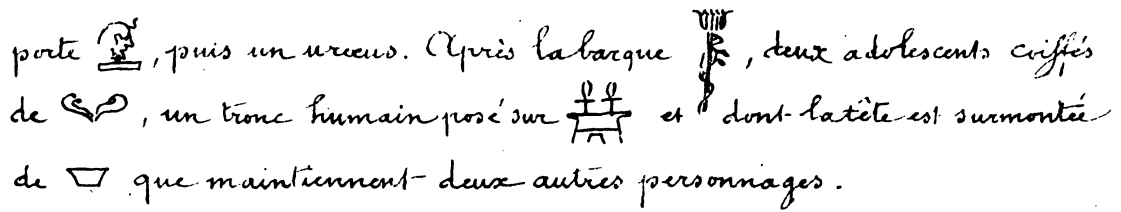 porte , puis un uraeus. Après la barque , deux adolescents coiffés
de , un tronc humain posé sur et dont la tête est surmontée
de que maintiennent deux autres personnages.